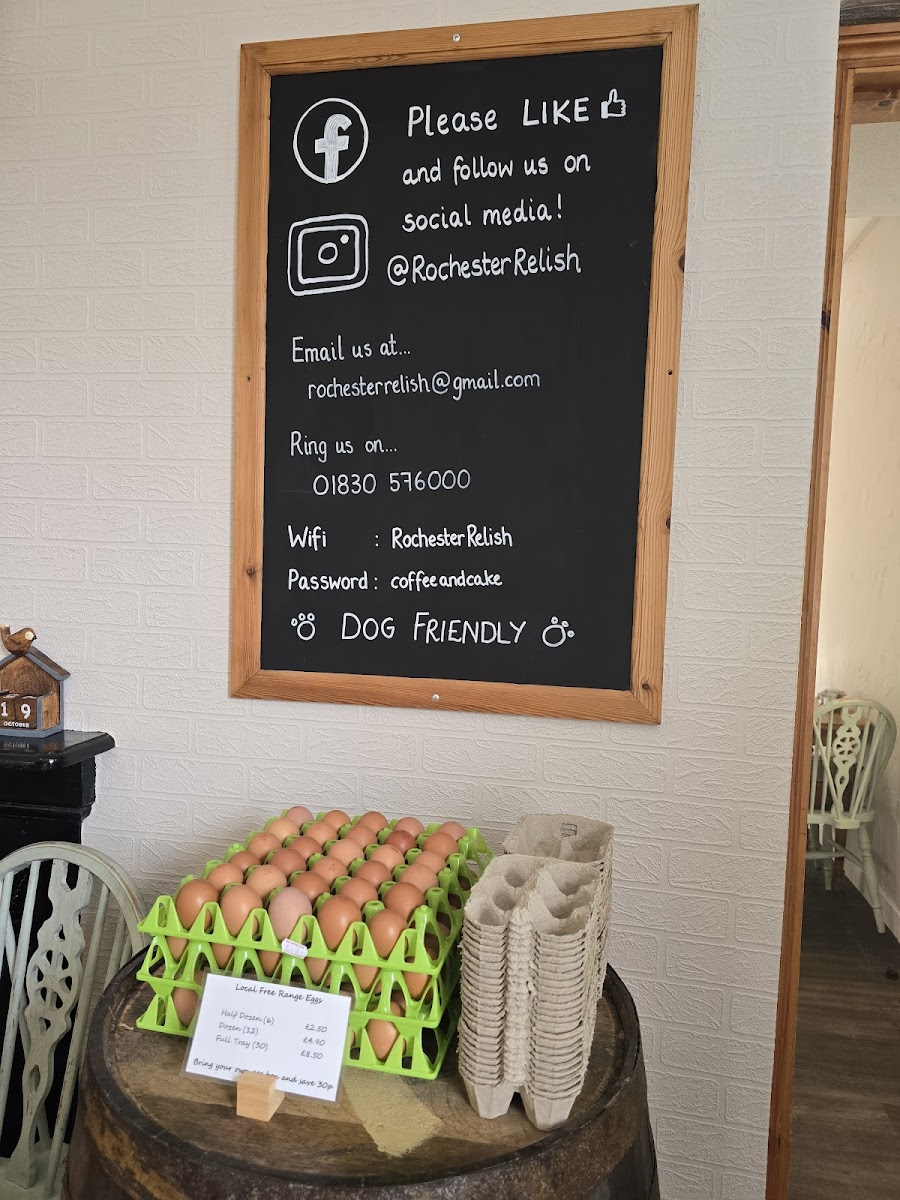 Please LIKE
and follow us on
social media!
@RochesterRelish
Email us at...
rochesterrelish@gmail.com
Ring us on...
01830 576000
Wifi : RochesterRelish
Password : coffeeandcake
DOG FRIENDLY
19
OCTOBER
Local Free Range Eggs
Half Dozen (6) £2.50
Dozen (12) £4.90
Full Tray (30) £8.50
Bring your own box and save 30p